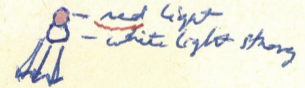 red light
white light strong